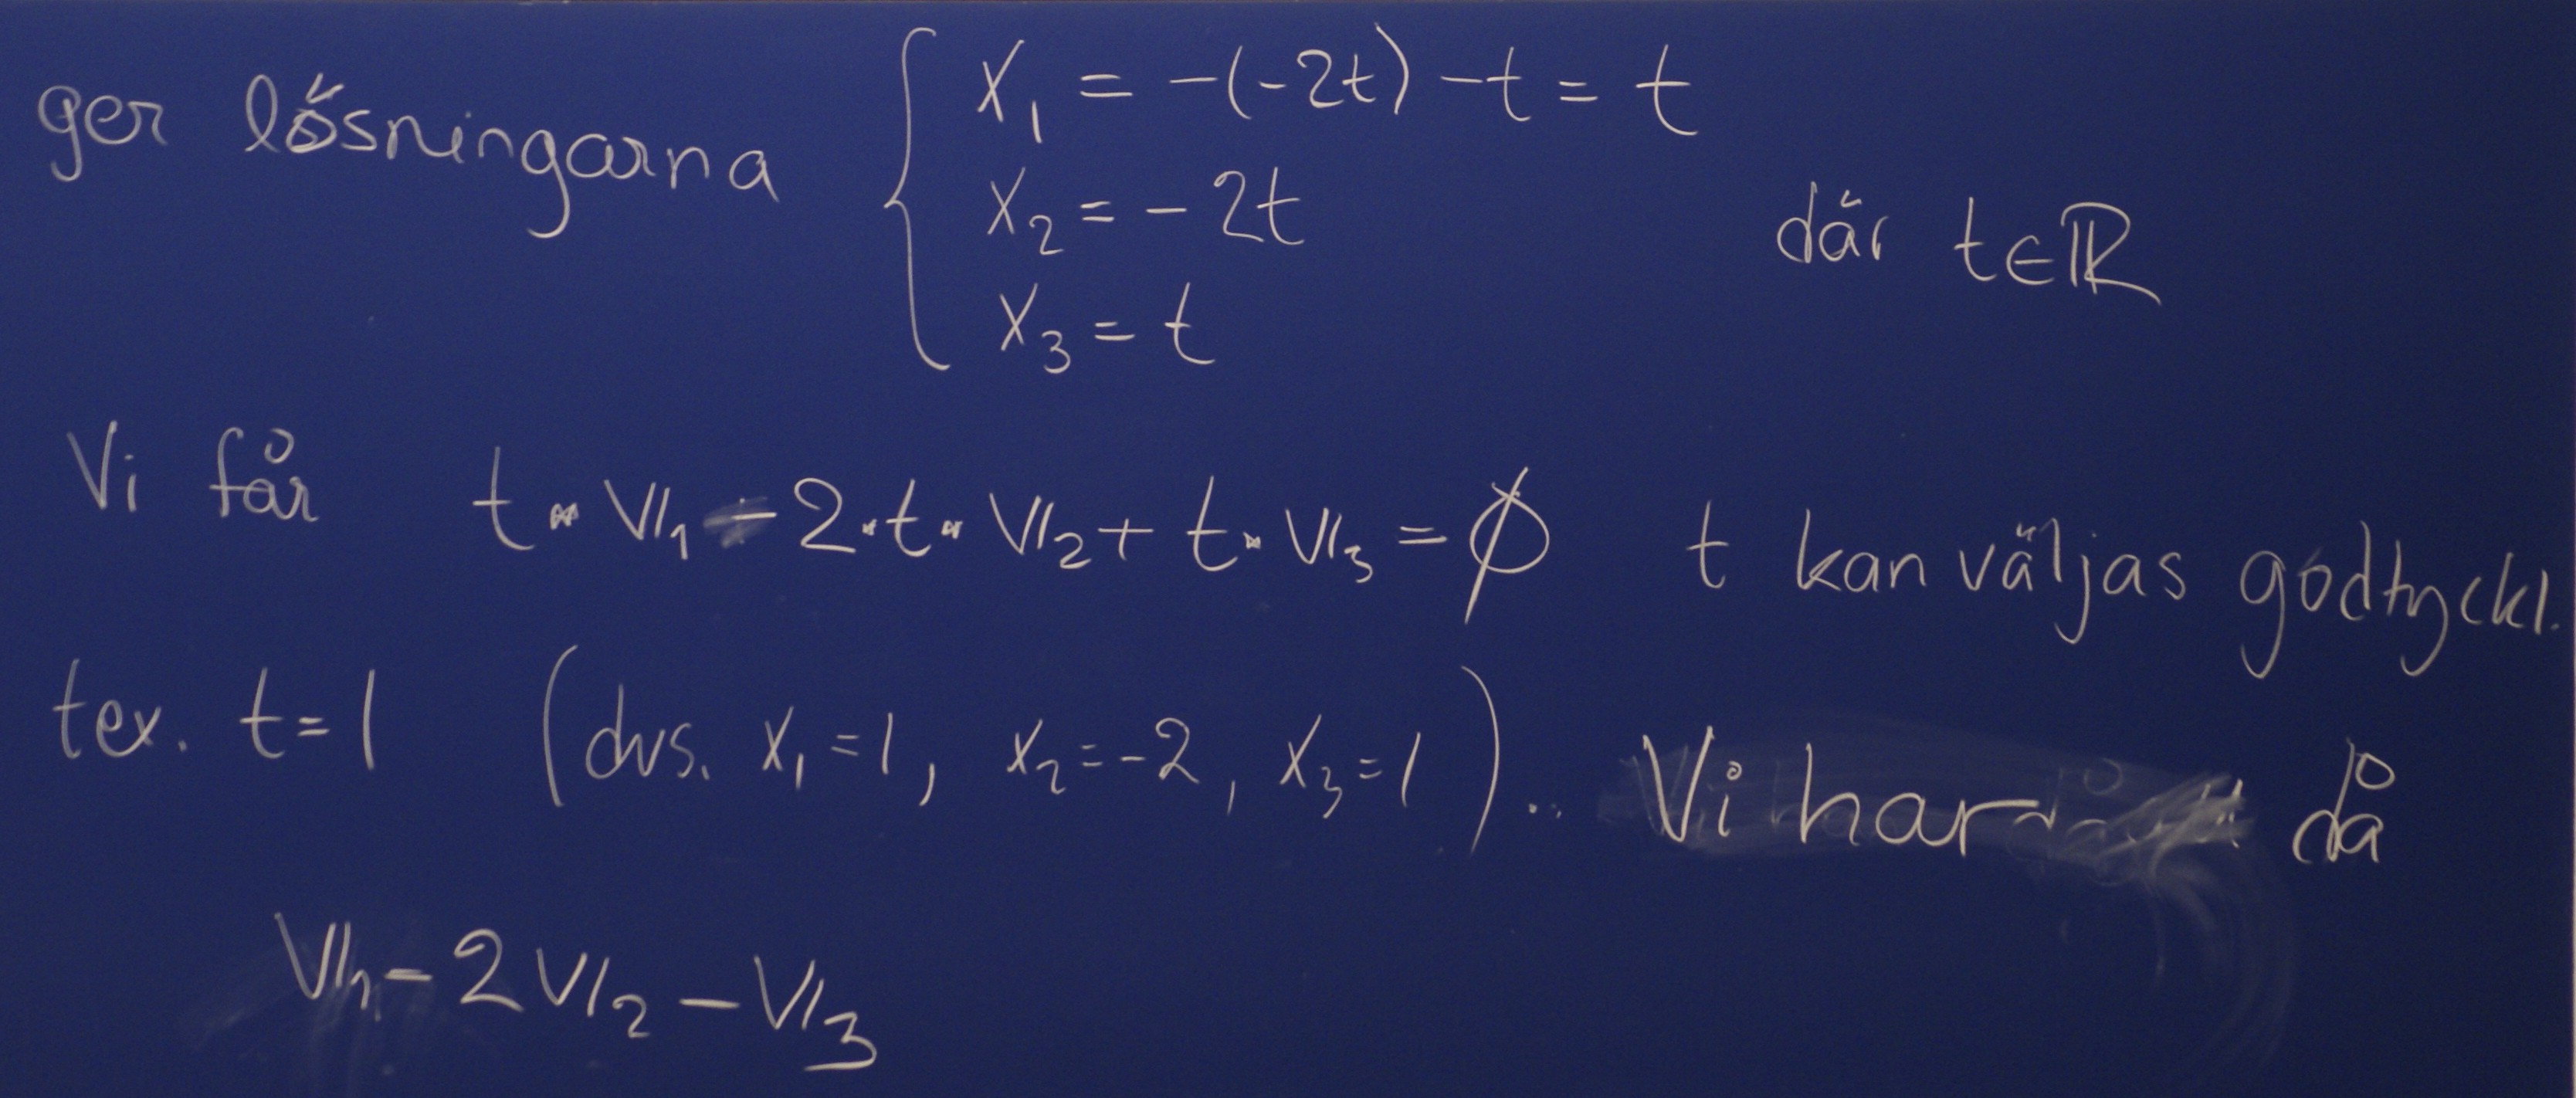 ger lösningarna { x₁ = -(-2t) - t = t
x₂ = -2t
x₃ = t
där t∈ℝ
Vi får t · 𝕍₁ - 2 · t · 𝕍₂ + t · 𝕍₃ = ∅ t kan väljas godtyckl.
tex. t = 1 (dvs. x₁ = 1, x₂ = -2, x₃ = 1). Vi har då
𝕍₁ - 2𝕍₂ - 𝕍₃